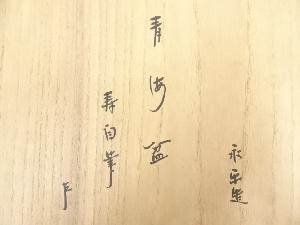 永楽造
青海盆
寿白筆